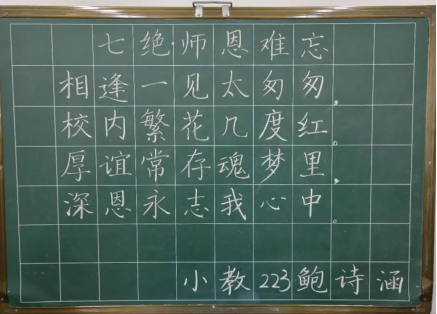 七绝·师恩难忘
相逢一见太匆匆，
校内繁花几度红。
厚谊常存魂梦里，
深恩永志我心中。
小教223鲍诗涵